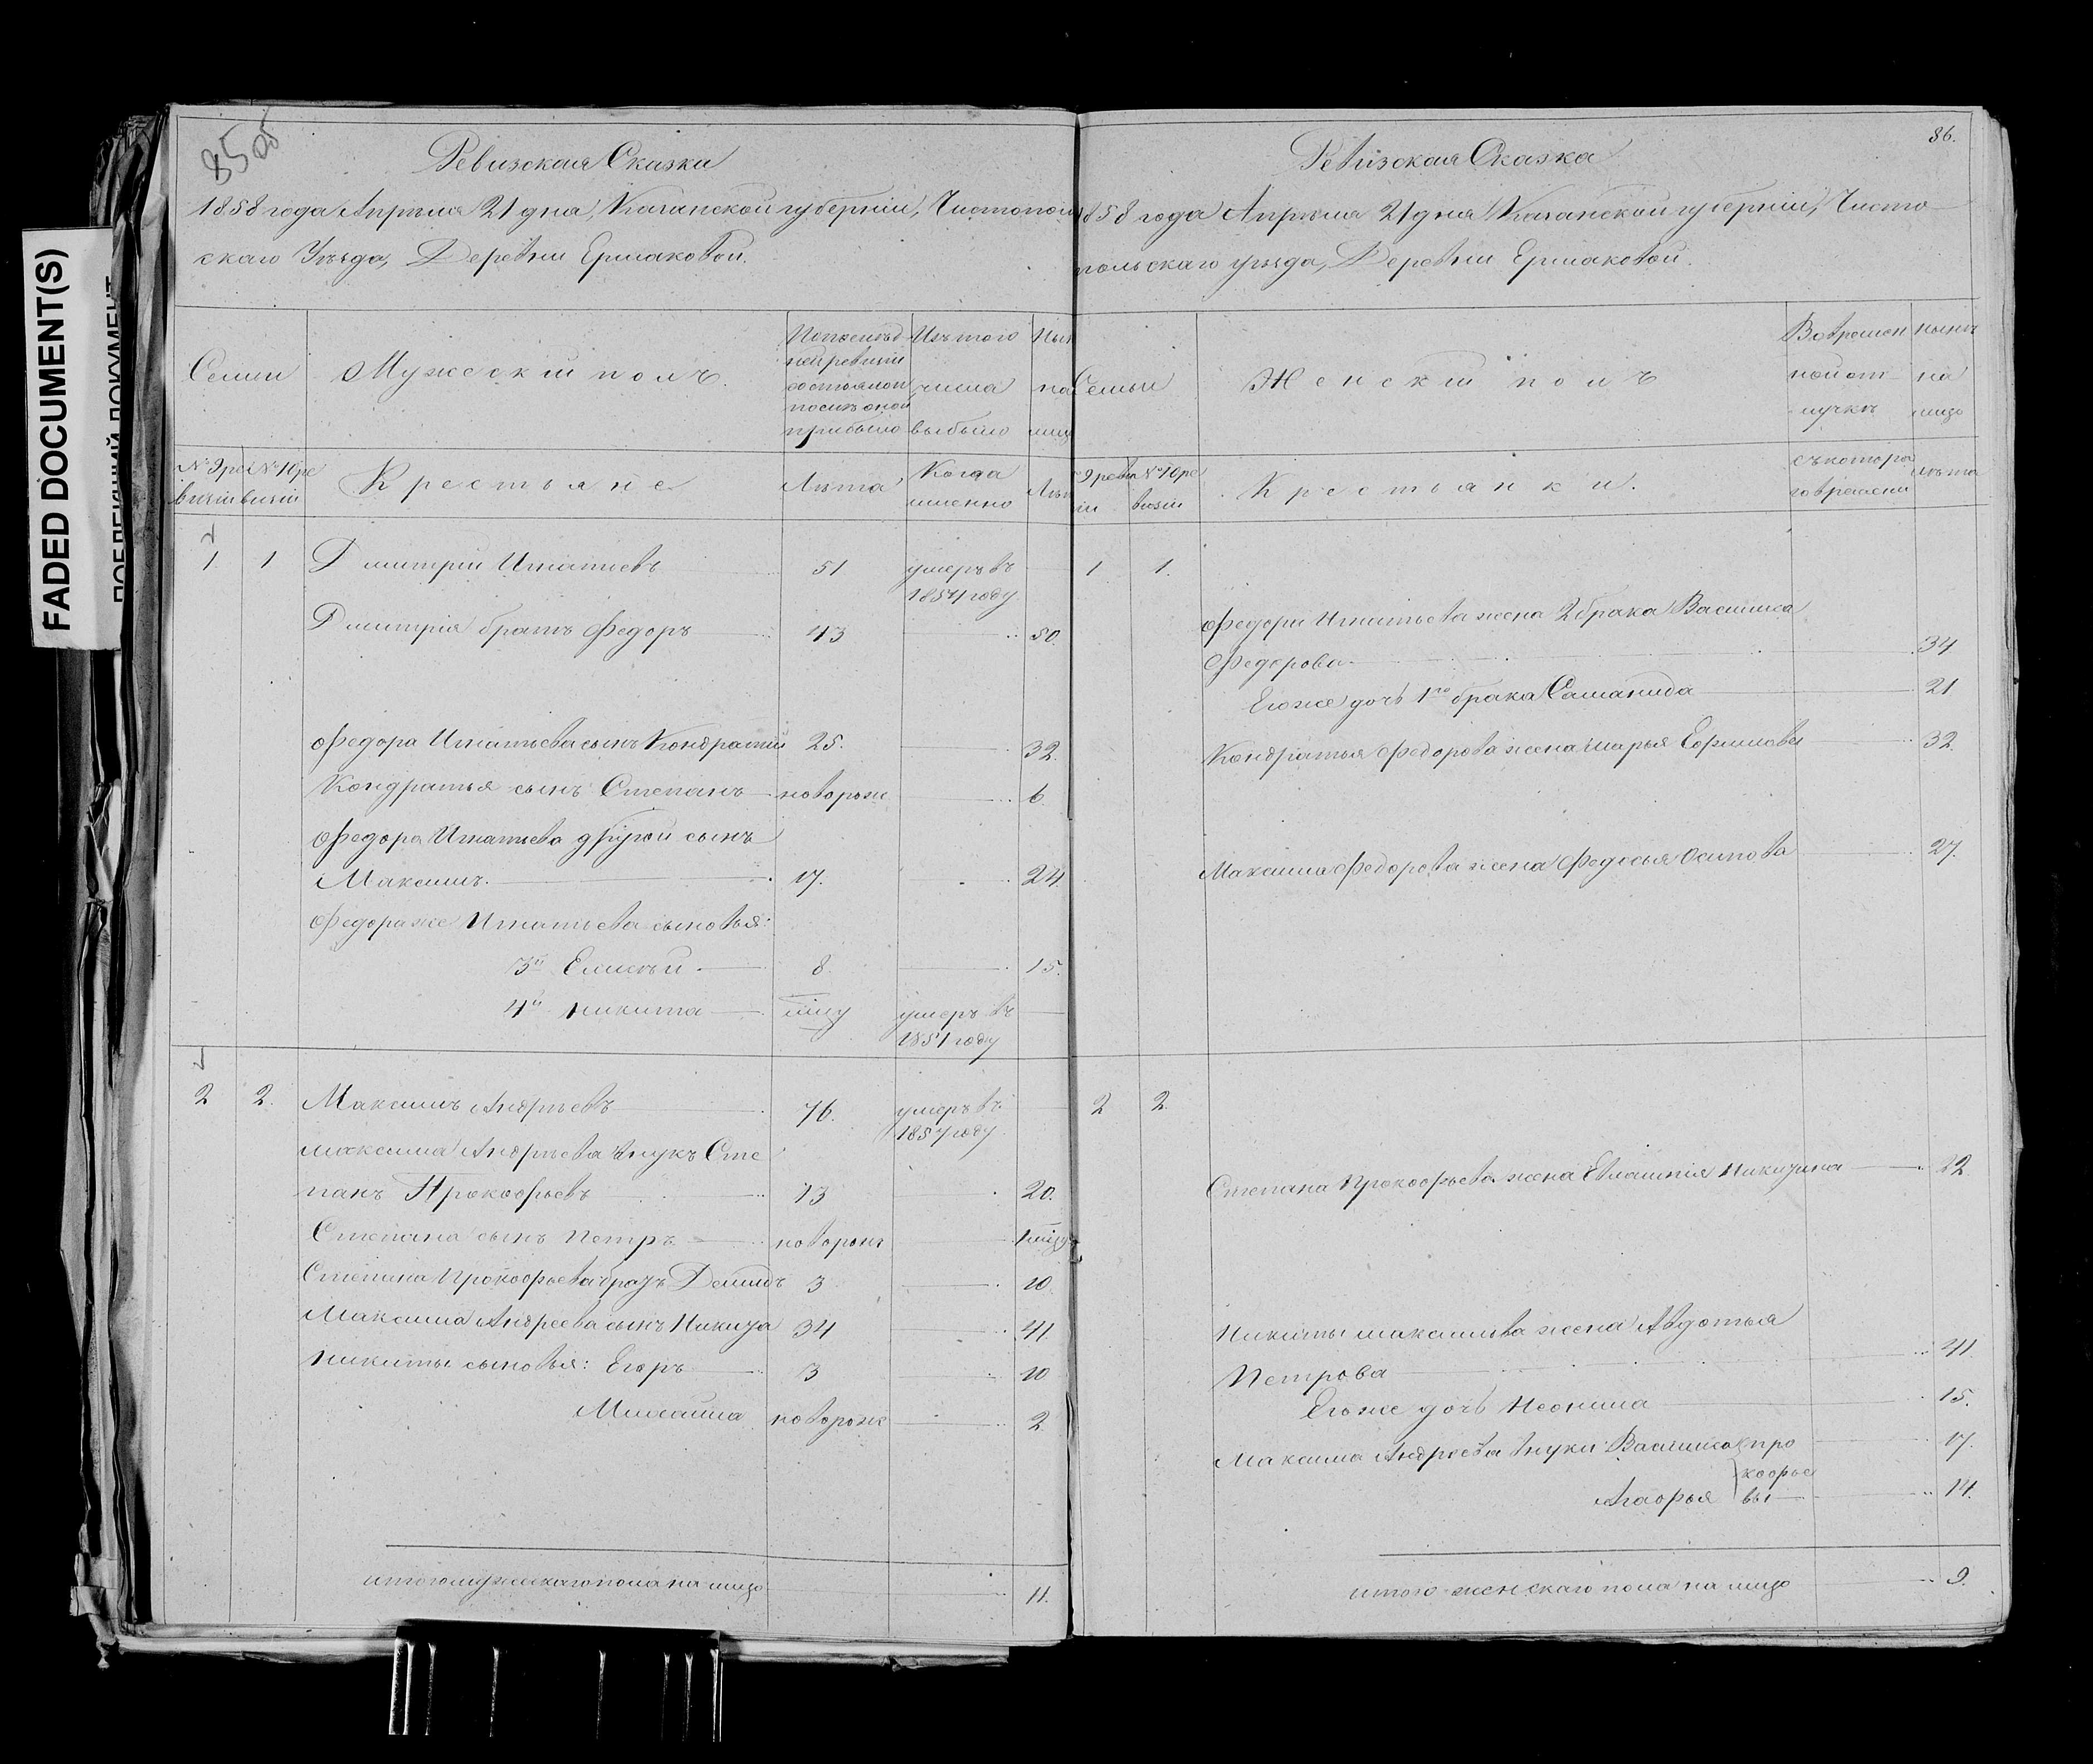 FADED DOCUMENT(S)
85 об
Ревизская Сказка
1858 года Апреля 21 дня, Казанской губерніи, Чистополь
скаго Уѣзда, Деревни Ермаковой.
Семьи
Мужескій полъ.
По послѣд
ней ревизіи
состояло и
послѣ оной
прибыло
Изъ того
числа
выбыло
Ны
на
лиц
№ 9 ре
визіи
№ 10 ре
визіи
Крестьяне
Лѣта
Когда
именно
Лѣт
1 1 Дмитрій Игнатьевъ 51 умеръ въ
1854 году
Дмитрія братъ Федоръ 43 50.
Федора Игнатьева сынъ Кондратій 25. 32.
Кондратья сынъ Степанъ новорож 6
Федора Игнатьева другой сынъ
Максимъ. 17. 24.
Федора же Игнатьева сыновья:
3й Елисѣй 8 15.
4й Никита умеръ въ
1851 году
2 2. Максимъ Андрѣевъ 76. умеръ въ
1857 году
Максима Андрѣева внукъ Сте
панъ Прокофьевъ 13 20.
Степана сынъ Петръ новорож
Степана Прокофьева братъ Демидъ 3 10.
Максима Андреева сынъ Никита 34 41
Никиты сыновья: Егоръ 3 10
Михаила новорож 2
итого мужескаго пола на лицо 11.
86.
Ревизская Сказка
1858 года Апреля 21 дня Казанской губерніи, Чисто
польскаго уѣзда, Деревни Ермаковой.
Семьи
Женскій полъ
Во времен
ной от
лучкѣ
нынѣ
на
лицо
9 реви
іи
№ 10 ре
визіи
Крестьянки.
съ котора
го времени
лѣта
1 1.
Федора Игнатьева жена 2 брака Василиса
Федорова 34
Его же дочь 1го брака Саманида 21
Кондратья Федорова жена Марья Ефимова 32.
Максима Федорова жена Федосья Осипова 27.
2 2.
Степана Прокофьева жена Евлампія Никитина 22
Никиты Максимова жена Авдотья
Петрова 41.
Его же дочь Неонила 15.
Максима Андрѣева внуки: Василиса про 17.
кофье
Агафья вы 14.
итого женскаго пола на лицо 9.